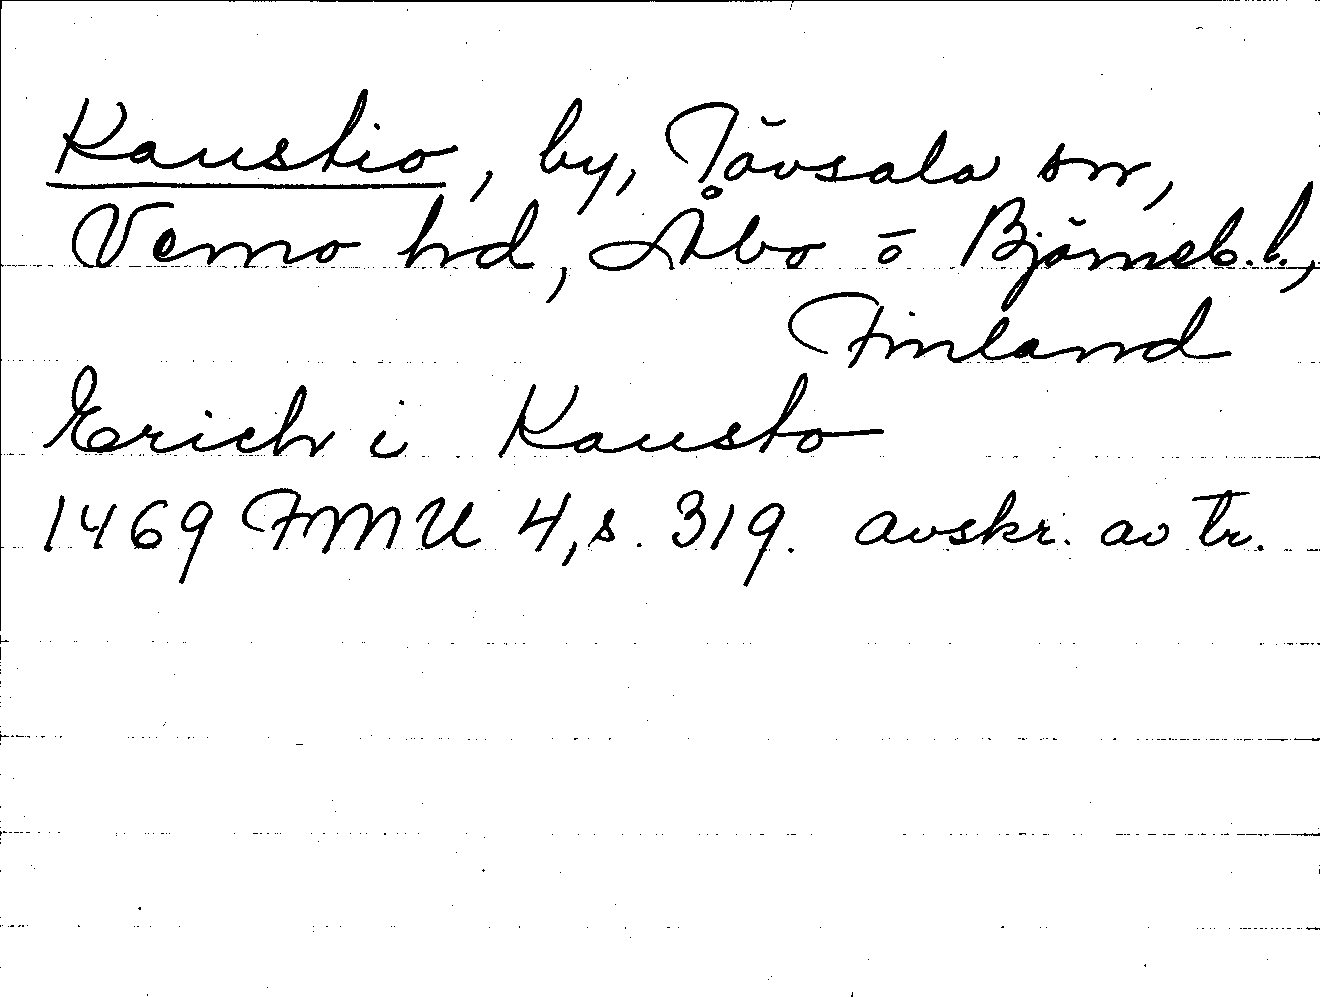 Kaustio, by, Tövsala sn,
Vemo hd, Åbo o Björneb. l.,
Finland
Erich i Kausto
1469 FMU 4, s. 319. avskr. av tr.